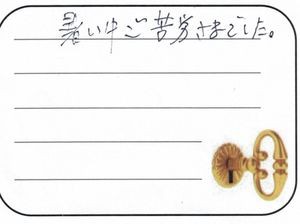 暑い中ご苦労さまでした。